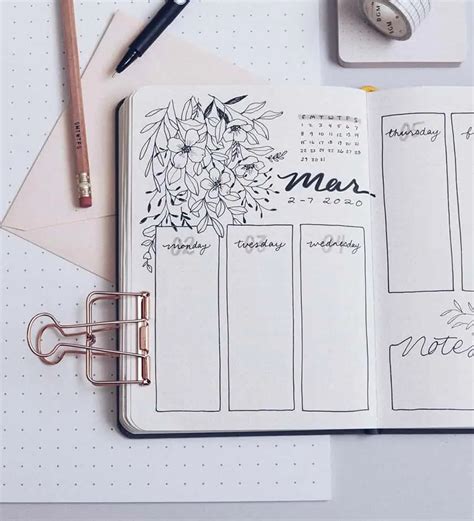 S M T W T F S
1 2 3 4 5 6 7
8 9 10 11 12 13 14
15 16 17 18 19 20 21
22 23 24 25 26 27 28
29 30 31
Mar.
2-7 2020
02 03 04 05
monday tuesday wednesday thursday
Notes
SMTWTFS